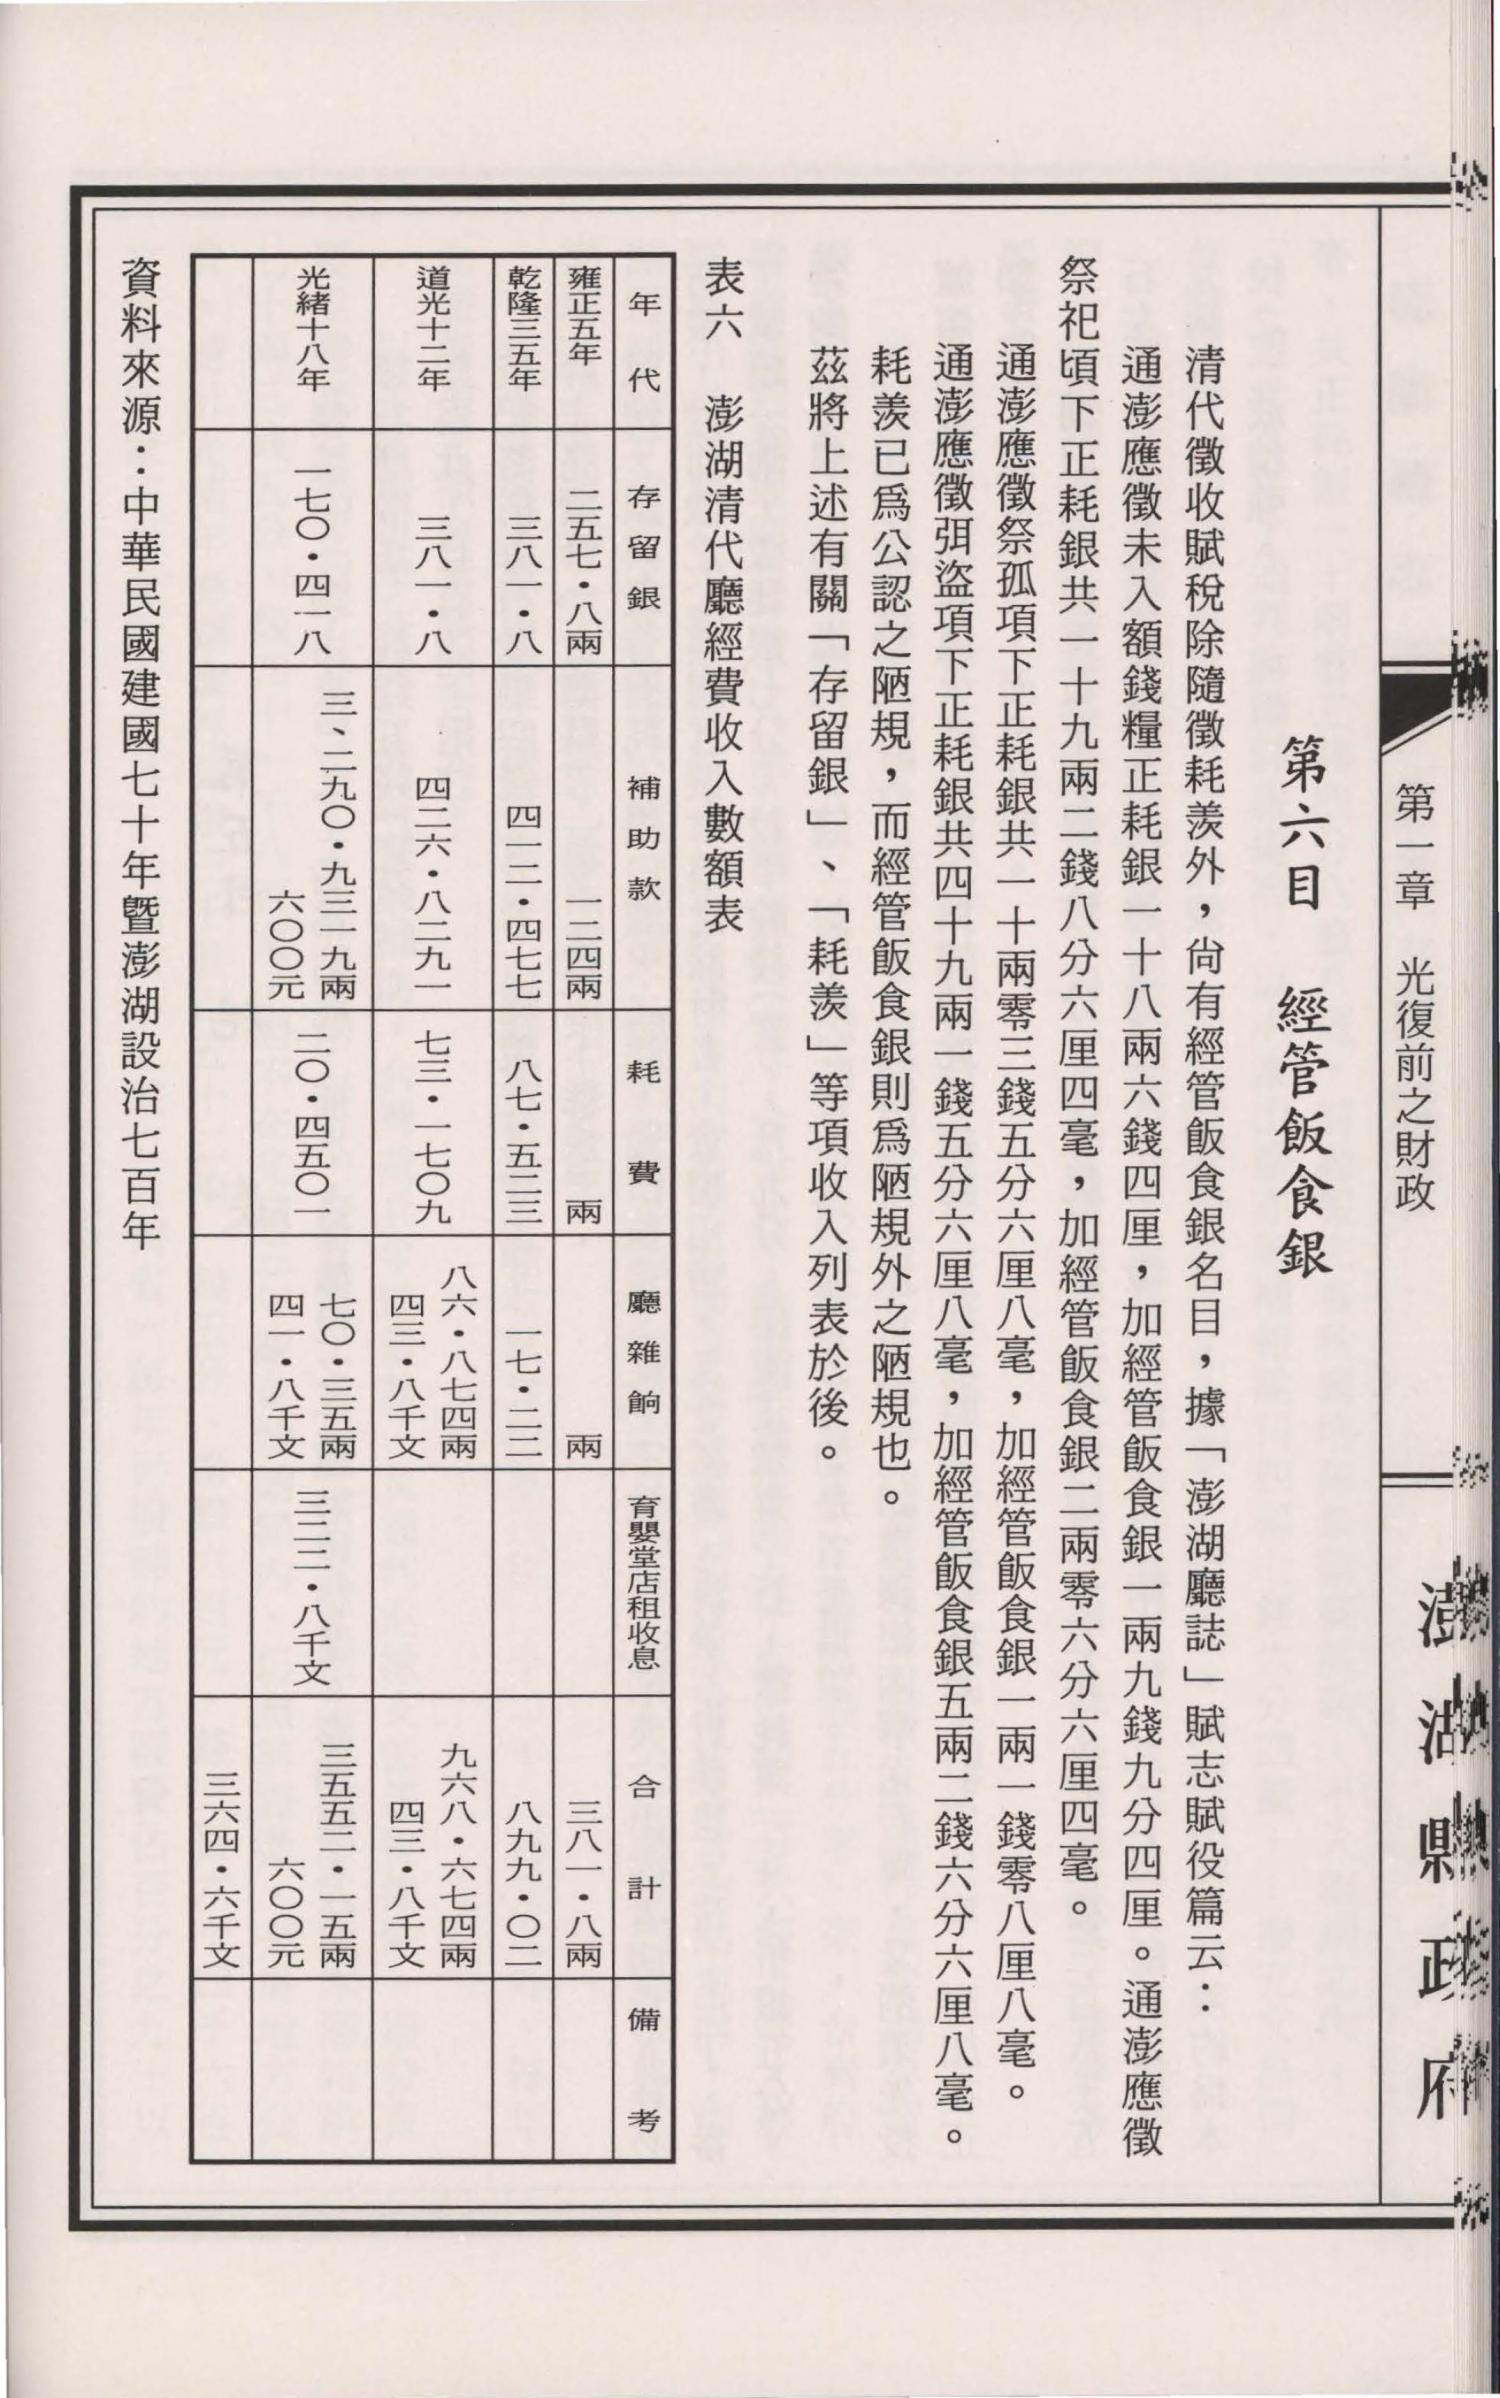 第一章　光復前之財政
澎湖縣政府
第六目　經管飯食銀
清代徵收賦稅除隨徵耗羨外，尚有經管飯食銀名目，據「澎湖廳誌」賦志賦役篇云：
通澎應徵未入額錢糧正耗銀一十八兩六錢四厘，加經管飯食銀一兩九錢九分四厘。通澎應徵
祭祀項下正耗銀共一十九兩二錢八分六厘四毫，加經管飯食銀二兩零六分六厘四毫。
通澎應徵祭孤項下正耗銀共一十兩零三錢五分六厘八毫，加經管飯食銀一兩一錢零八厘八毫。
通澎應徵弭盜項下正耗銀共四十九兩一錢五分六厘八毫，加經管飯食銀五兩二錢六分六厘八毫。
耗羨已爲公認之陋規，而經管飯食銀則爲陋規外之陋規也。
茲將上述有關「存留銀」、「耗羨」等項收入列表於後。
表六　澎湖清代廳經費收入數額表
年代　存留銀　補助款　耗費　廳雜餉　育嬰堂店租收息　合計　備考
雍正五年　二五七・八兩　一二四兩　兩　兩　三八一・八兩
乾隆三五年　三八一・八　四一二・四七七　八七・五二三　一七・二二　八九九・〇二
道光十二年　三八一・八　四二六・八二九一　七三・一七〇九　八六・八七四兩　九六八・六七四兩
四三・八千文　四三・八千文
光緒十八年　一七〇・四一八　三、二九〇・九三一九兩　二〇・四五〇一　七〇・三五兩　三二二・八千文　三五五二・一五兩
六〇〇元　四一・八千文　六〇〇元
三六四・六千文
資料來源：中華民國建國七十年暨澎湖設治七百年